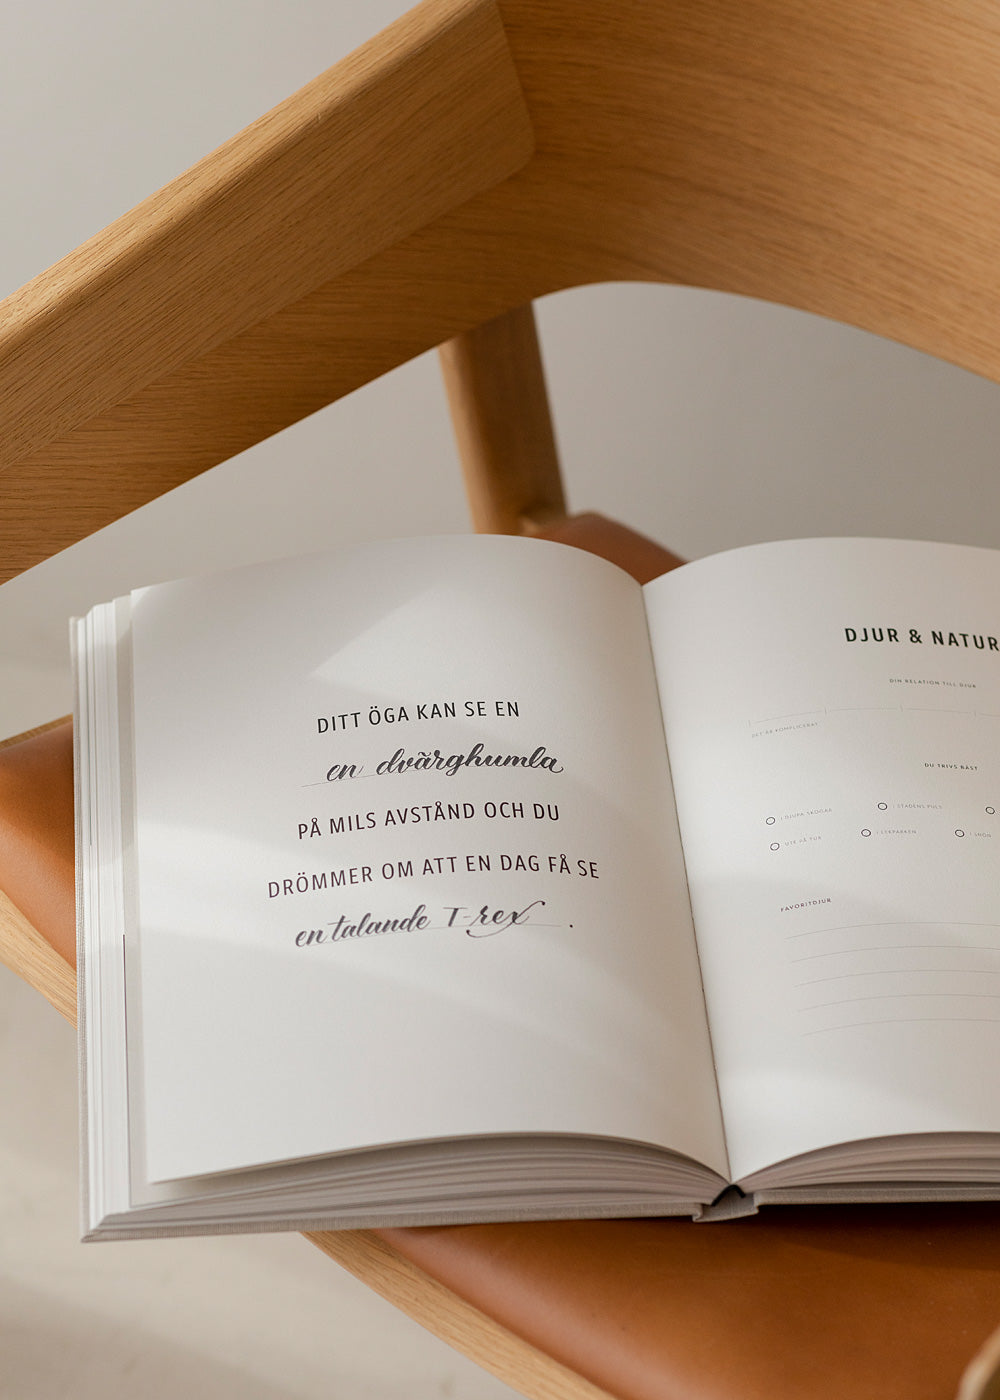 DITT ÖGA KAN SE EN
en dvärghumla
PÅ MILS AVSTÅND OCH DU
DRÖMMER OM ATT EN DAG FÅ SE
en talande T-rex .
DJUR & NATUR
DIN RELATION TILL DJUR
DET ÄR KOMPLICERAT
DU TRIVS BÄST
I DJUPA SKOGAR
I STADENS PULS
UTE PÅ TUR
I LEKPARKEN
I SNÖN
FAVORITDJUR